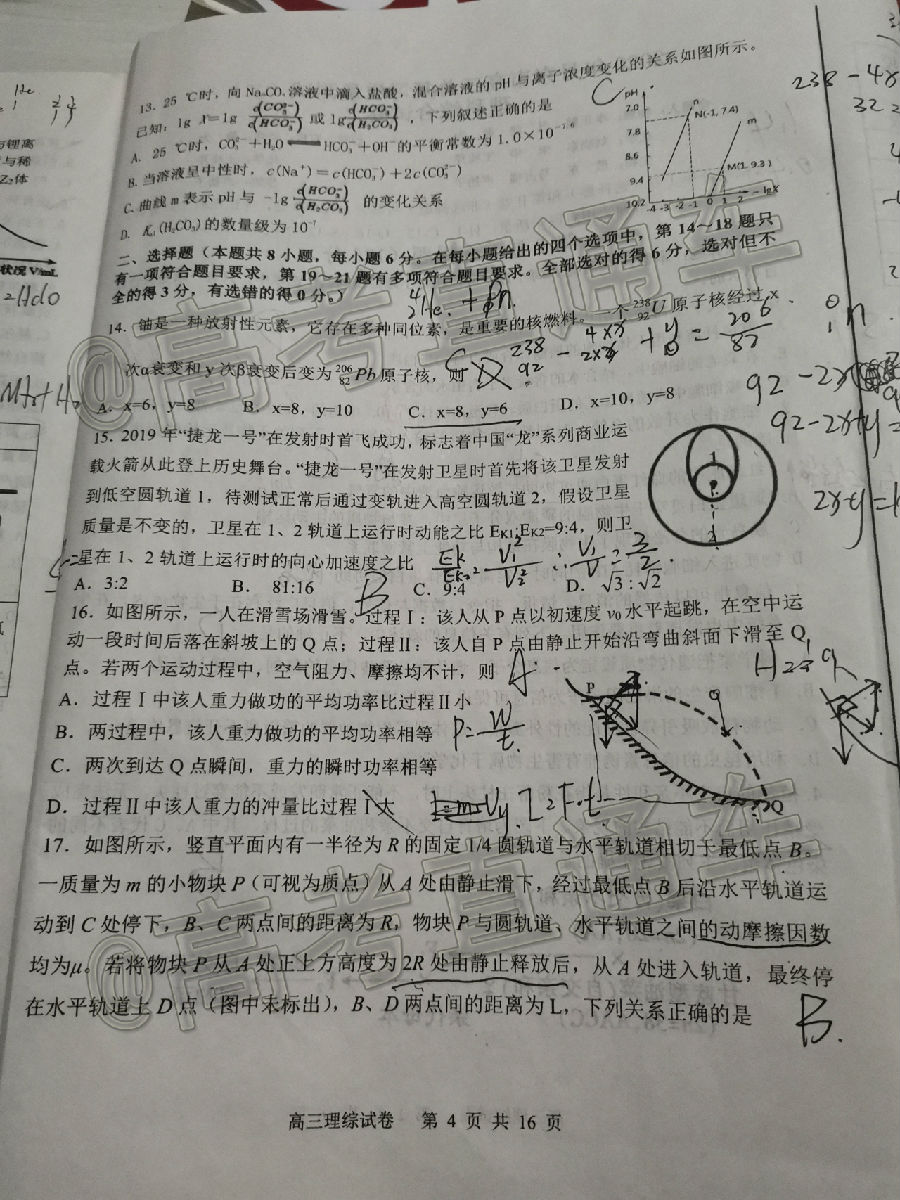 13. 25 ℃时，向 Na₂CO₃ 溶液中滴入盐酸，混合溶液的 pH 与离子浓度变化的关系如图所示。
已知：lg X=lg c(CO₃²⁻)/c(HCO₃⁻) 或 lg c(HCO₃⁻)/c(H₂CO₃)，下列叙述正确的是
A. 25 ℃时，CO₃²⁻+H₂O ⇌ HCO₃⁻+OH⁻的平衡常数为 1.0×10
B. 当溶液呈中性时，c(Na⁺)=c(HCO₃⁻)+2c(CO₃²⁻)
C. 曲线 m 表示 pH 与 -lg c(HCO₃⁻)/c(H₂CO₃) 的变化关系
D. (H₂CO₃)的数量级为 10
pH
7.0
7.8
8.6
9.4
10.2
n
N(-1, 7.4)
m
M(1, 9.3)
-4 -3 -2 -1 0 1 2 -lgX
C
二、选择题（本题共 8 小题，每小题 6 分。在每小题给出的四个选项中，第 14～18 题只
有一项符合题目要求，第 19～21 题有多项符合题目要求。全部选对的得 6 分，选对但不
全的得 3 分，有选错的得 0 分。）
14. 铀是一种放射性元素，它存在多种同位素，是重要的核燃料。一个 ²³⁸₉₂U 原子核经过 x
次α衰变和 y 次β衰变后变为 ²⁰⁶₈₂Pb 原子核，则
A．x=6，y=8 B．x=8，y=10 C．x=8，y=6 D．x=10，y=8
15. 2019 年“捷龙一号”在发射时首飞成功，标志着中国“龙”系列商业运
载火箭从此登上历史舞台。“捷龙一号”在发射卫星时首先将该卫星发射
到低空圆轨道 1，待测试正常后通过变轨进入高空圆轨道 2，假设卫星
质量是不变的，卫星在 1、2 轨道上运行时动能之比 EK1:EK2=9:4，则卫
星在 1、2 轨道上运行时的向心加速度之比
A．3:2 B．81:16 C．9:4 D．√3:√2
1
2
B
16．如图所示，一人在滑雪场滑雪。过程Ⅰ：该人从 P 点以初速度 v₀ 水平起跳，在空中运
动一段时间后落在斜坡上的 Q 点；过程Ⅱ：该人自 P 点由静止开始沿弯曲斜面下滑至 Q
点。若两个运动过程中，空气阻力、摩擦均不计，则
A．过程Ⅰ中该人重力做功的平均功率比过程Ⅱ小
B．两过程中，该人重力做功的平均功率相等
C．两次到达 Q 点瞬间，重力的瞬时功率相等
D．过程Ⅱ中该人重力的冲量比过程Ⅰ大
P
Q
A
P=W/t
17．如图所示，竖直平面内有一半径为 R 的固定 1/4 圆轨道与水平轨道相切于最低点 B。
一质量为 m 的小物块 P（可视为质点）从 A 处由静止滑下，经过最低点 B 后沿水平轨道运
动到 C 处停下，B、C 两点间的距离为 R，物块 P 与圆轨道、水平轨道之间的动摩擦因数
均为μ。若将物块 P 从 A 处正上方高度为 2R 处由静止释放后，从 A 处进入轨道，最终停
在水平轨道上 D 点（图中未标出），B、D 两点间的距离为 L，下列关系正确的是
B.
高三理综试卷 第 4 页 共 16 页
@高考直通车
@高考直通车